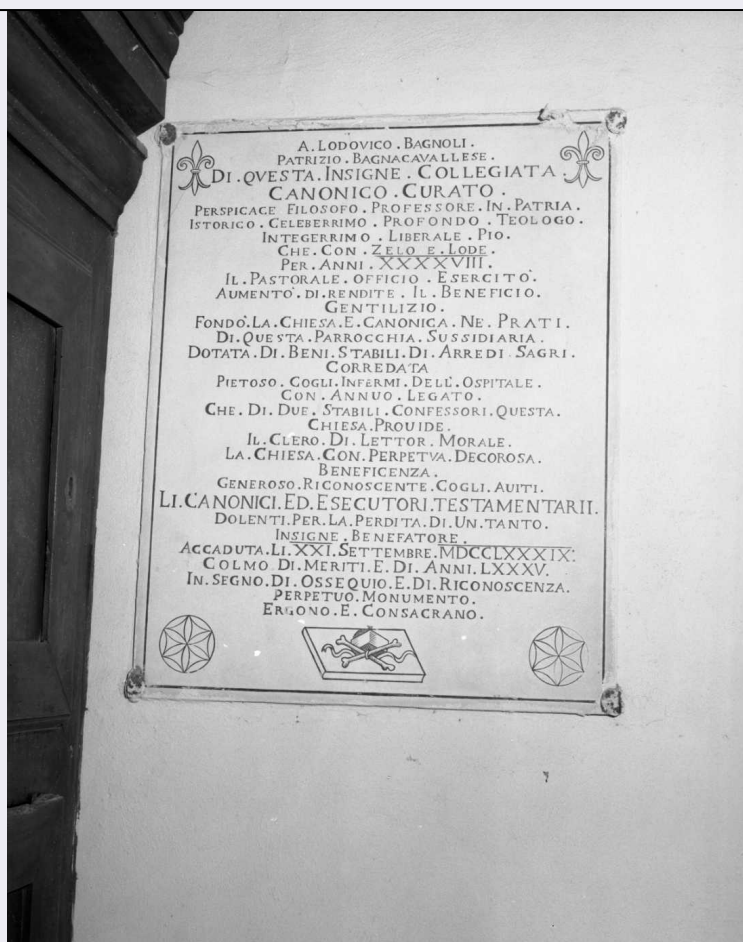 A. LODOVICO . BAGNOLI .
PATRIZIO . BAGNACAVALLESE .
DI . QVESTA . INSIGNE . COLLEGIATA .
CANONICO . CURATO .
PERSPICACE FILOSOFO . PROFESSORE . IN . PATRIA .
ISTORICO . CELEBERRIMO . PROFONDO . TEOLOGO .
INTEGERRIMO . LIBERALE . PIO .
CHE . CON . ZELO E . LODE .
PER . ANNI . XXXXVIII .
IL . PASTORALE . OFFICIO . ESERCITÒ .
AUMENTÒ . DI . RENDITE . IL . BENEFICIO .
GENTILIZIO .
FONDÒ . LA . CHIESA . E . CANONICA . NE' PRATI .
DI . QUESTA . PARROCCHIA . SUSSIDIARIA .
DOTATA . DI . BENI . STABILI . DI . ARREDI SAGRI .
CORREDATA
PIETOSO . COGLI . INFERMI . DELL'. OSPITALE .
CON . ANNUO . LEGATO .
CHE . DI . DUE . STABILI . CONFESSORI . QUESTA .
CHIESA . PROUIDE .
IL . CLERO . DI . LETTOR . MORALE .
LA . CHIESA . CON . PERPETVA . DECOROSA .
BENEFICENZA .
GENEROSO . RICONOSCENTE . COGLI . AVITI .
LI . CANONICI . ED . ESECUTORI . TESTAMENTARII .
DOLENTI . PER . LA . PERDITA . DI . UN . TANTO .
INSIGNE . BENEFATORE .
ACCADUTA . LI . XXI . SETTEMBRE . MDCCLXXXIX .
COLMO DI . MERITI . E . DI . ANNI . LXXXV .
IN . SEGNO . DI . OSSEQUIO . E . DI . RICONOSCENZA .
PERPETUO . MONUMENTO .
ERGONO . E . CONSACRANO .